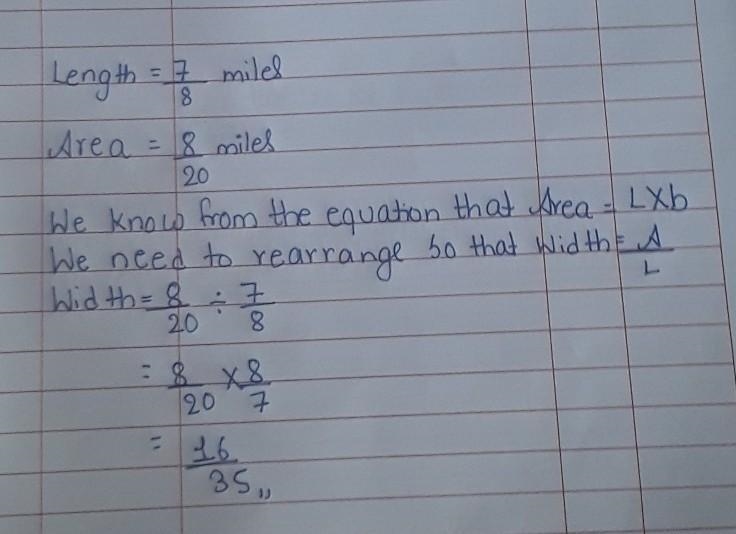 Length = 7/8 miles
Area = 8/20 miles
We know from the equation that Area = L×b
We need to rearrange so that Width = A/L
Width = 8/20 ÷ 7/8
= 8/20 × 8/7
= 16/35,,